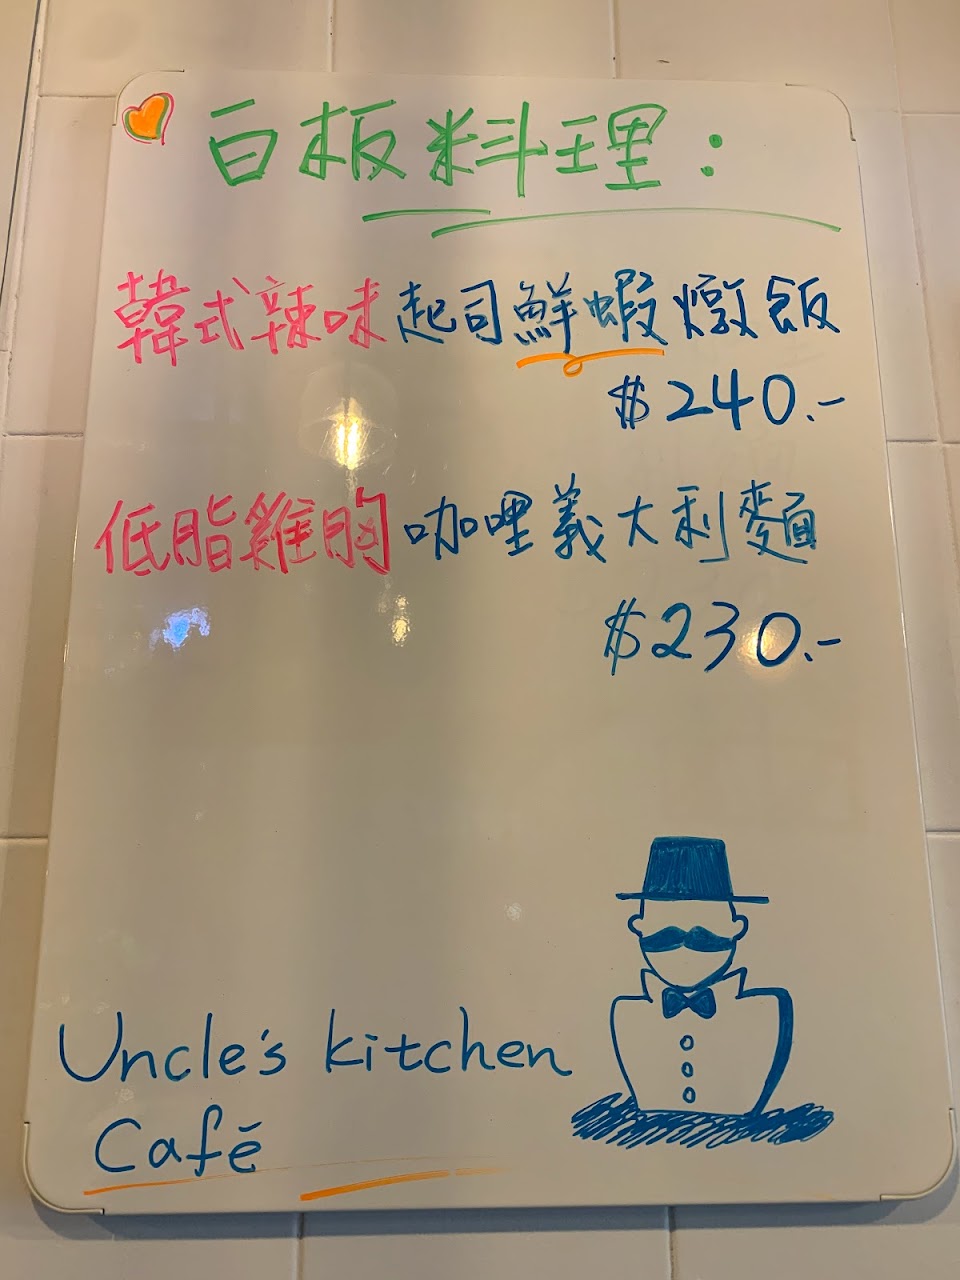 白板料理：
韓式辣味起司鮮蝦燉飯
$240.-
低脂雞胸咖哩義大利麵
$230.-
Uncle's kitchen
Café